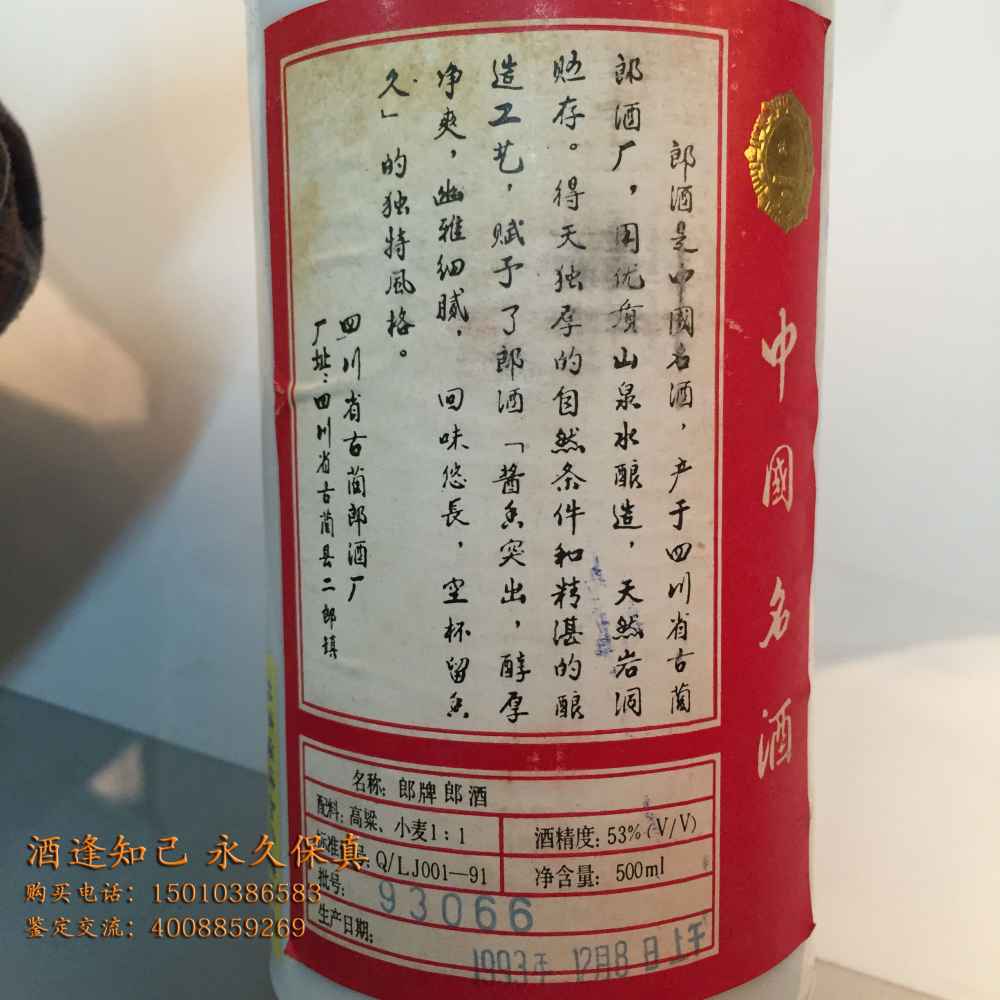 中國名酒
郎酒是中國名酒，产于四川省古蔺
郎酒厂，用优质山泉水酿造，天然岩洞
贮存。得天独厚的自然条件和精湛的酿
造工艺，赋予了郎酒「酱香突出，醇厚
净爽，幽雅细腻，回味悠長，空杯留香
久」的独特风格。
四川省古蔺郎酒厂
厂址：四川省古蔺县二郎镇
名称：郎牌郎酒
配料：高粱、小麦1：1
酒精度：53%（V/V）
Q/LJ001—91
净含量：500ml
批号：93066
生产日期：1993年12月8日上午
酒逢知己 永久保真
购买电话：15010386583
鉴定交流：4008859269